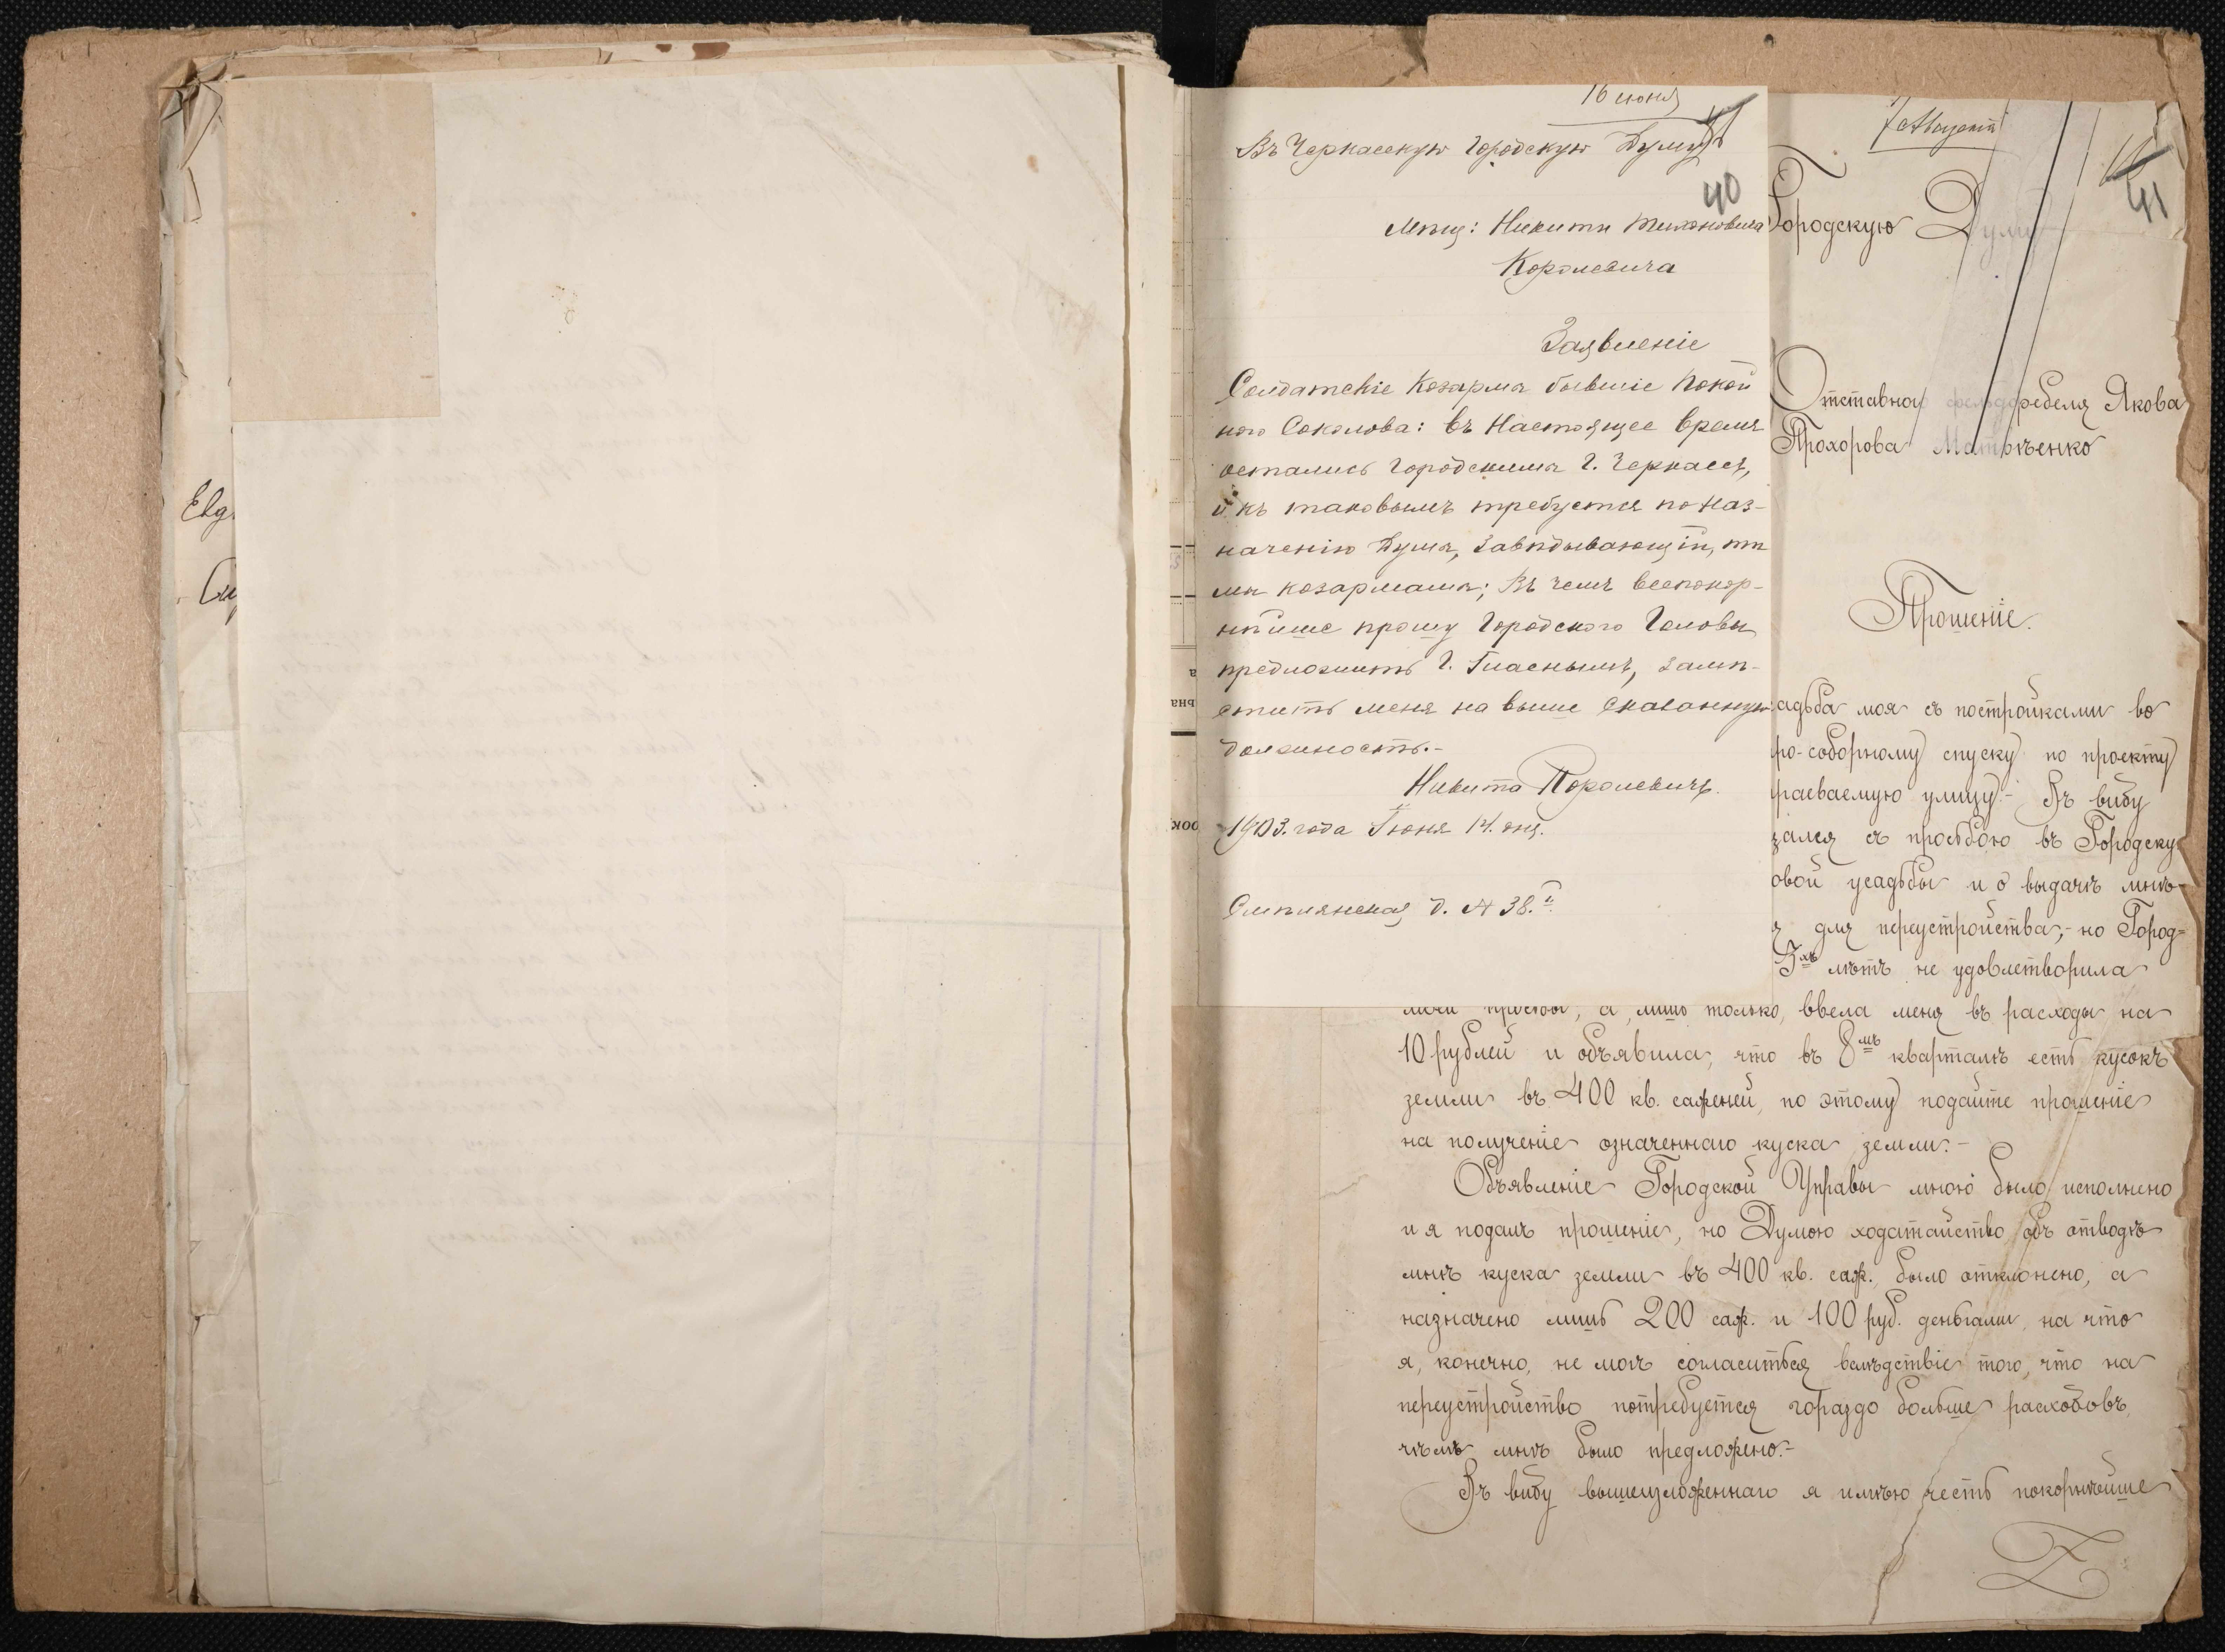 Евг
16 июня
Въ Черкасскую Городскую Думу
40
Мѣщ: Никиты Тихоновича
Королевича
Заявленіе
Солдатскіе Козармы бывшіе Покой
ного Соколова: въ Настоящее время
остались Городскими Г. Черкассъ,
и къ таковымъ требуется по наз-
наченію Думы, Завѣдывающій, тѣ
ми козармами; Въ чемъ всепокор-
нѣише прошу Городского Головы
предложить Г. Гласнымъ, замѣ-
стить меня на выше сказанную
должность.-
Никита Королевичъ.
1903. года Іюня 14. дня.
Смѣлянская д. № 38.й
7 Августа
41
Городскую Думу
Отставного фельдфебеля Якова
Прохорова Матвѣенко
Прошеніе.
адьба моя съ постройками во
ро-соборному спуску по проекту
раеваемую улицу.- Въ виду
зался съ просьбою въ Городску
овой усадьбы и о выдачѣ мнѣ
для переустройства,- но Город=
3хъ лѣтъ не удовлетворила
моей просьбы, а лишь только, ввела меня въ расходы на
10 рублей и объявила, что въ 8мъ кварталѣ есть кусокъ
земли въ 400 кв. саженей, по этому подайте прошеніе
на полученіе означеннаго куска земли.-
Объявленіе Городской Управы мною было исполнено
и я подалъ прошеніе, но Думою ходатайство объ отводѣ
мнѣ куска земли въ 400 кв. саж., было отклонено, а
назначено лишь 200 саж. и 100 руб. деньгами, на что
я, конечно, не могъ согласиться вслѣдствіе того, что на
переустройство потребуется гораздо больше расходовъ,
чѣмъ мнѣ было предложено.-
Въ виду вышеизложеннаго я имѣю честь покорнѣйше